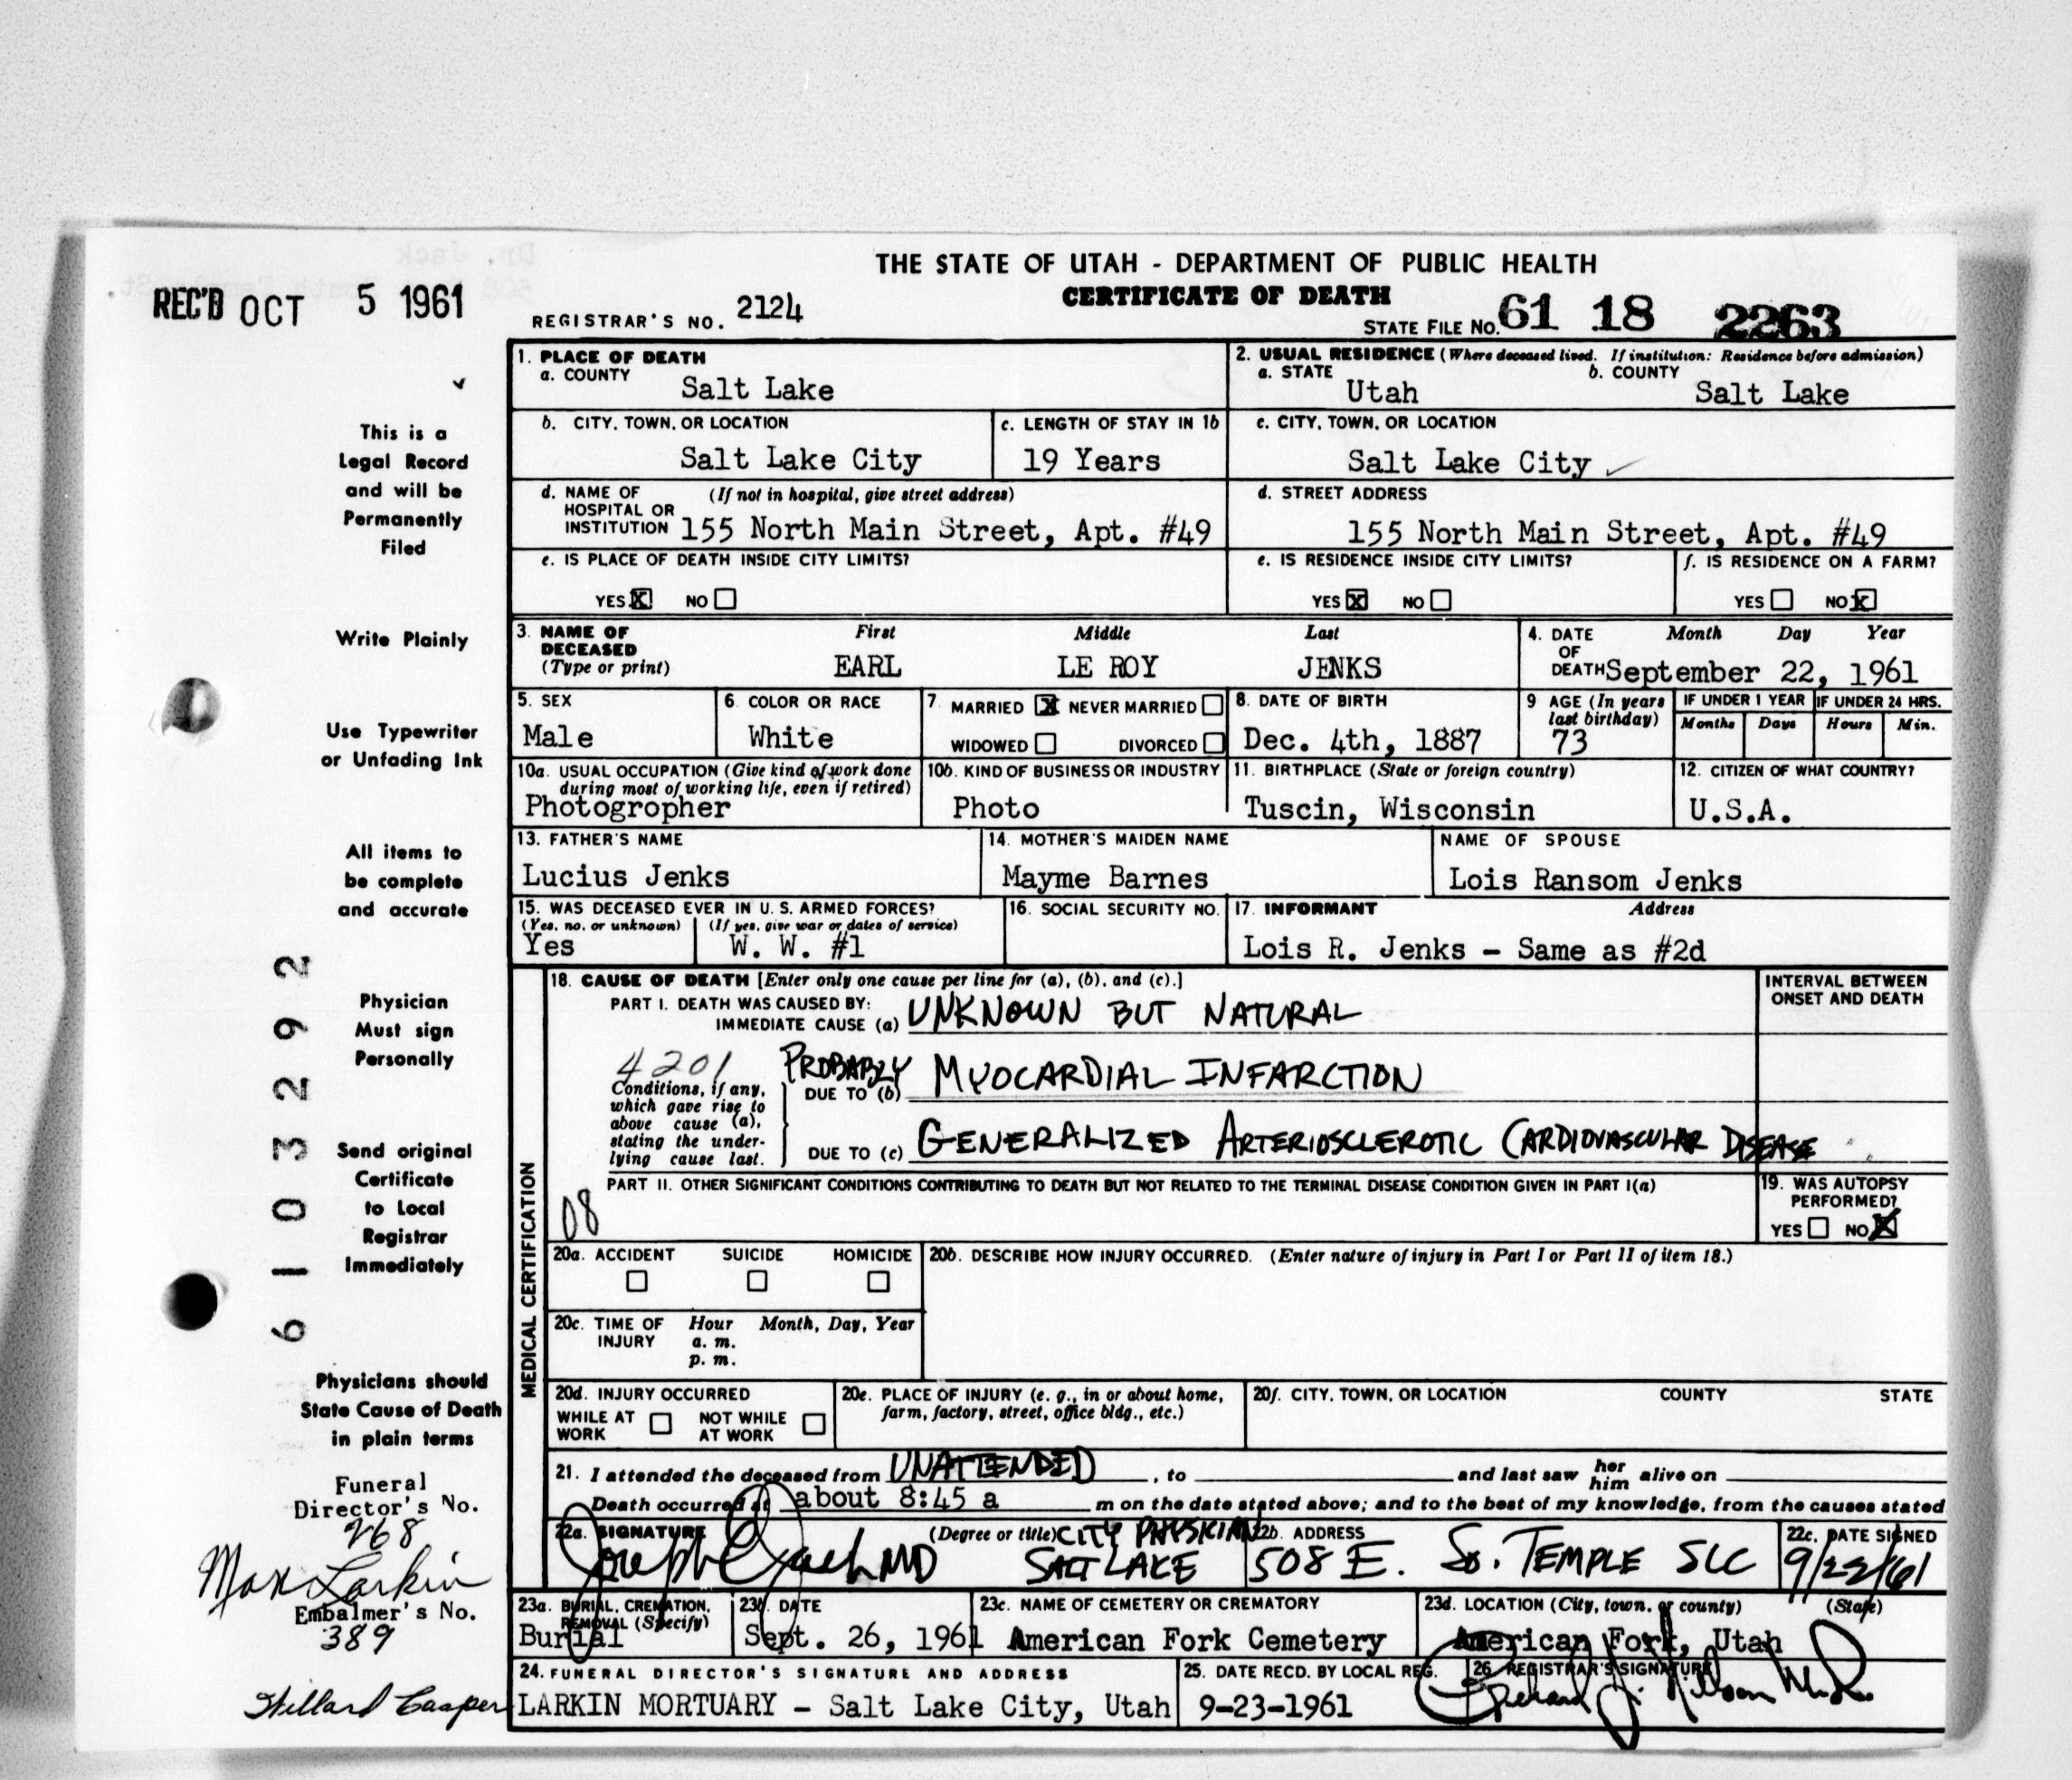 THE STATE OF UTAH - DEPARTMENT OF PUBLIC HEALTH
CERTIFICATE OF DEATH
REC'D OCT 5 1961
REGISTRAR'S NO. 2124
STATE FILE NO. 61 18 2263
This is a
Legal Record
and will be
Permanently
Filed
Write Plainly
Use Typewriter
or Unfading Ink
All items to
be complete
and accurate
Physician
Must sign
Personally
Send original
Certificate
to Local
Registrar
Immediately
Physicians should
State Cause of Death
in plain terms
Funeral
Director's No.
268
Max Larkin
Embalmer's No.
389
Willard Casper
61 03292
1. PLACE OF DEATH
a. COUNTY Salt Lake
2. USUAL RESIDENCE (Where deceased lived. If institution: Residence before admission)
a. STATE Utah b. COUNTY Salt Lake
b. CITY, TOWN, OR LOCATION Salt Lake City
c. LENGTH OF STAY IN 1b 19 Years
c. CITY, TOWN, OR LOCATION Salt Lake City
d. NAME OF HOSPITAL OR INSTITUTION (If not in hospital, give street address) 155 North Main Street, Apt. #49
d. STREET ADDRESS 155 North Main Street, Apt. #49
e. IS PLACE OF DEATH INSIDE CITY LIMITS?
YES X NO
e. IS RESIDENCE INSIDE CITY LIMITS?
YES X NO
f. IS RESIDENCE ON A FARM?
YES NO X
3. NAME OF DECEASED (Type or print) First Middle Last
EARL LE ROY JENKS
4. DATE OF DEATH Month Day Year
September 22, 1961
5. SEX Male
6. COLOR OR RACE White
7. MARRIED X NEVER MARRIED
WIDOWED DIVORCED
8. DATE OF BIRTH Dec. 4th, 1887
9 AGE (In years last birthday) 73
IF UNDER 1 YEAR Months Days
IF UNDER 24 HRS. Hours Min.
10a. USUAL OCCUPATION (Give kind of work done during most of working life, even if retired)
Photogropher
10b. KIND OF BUSINESS OR INDUSTRY
Photo
11. BIRTHPLACE (State or foreign country)
Tuscin, Wisconsin
12. CITIZEN OF WHAT COUNTRY?
U.S.A.
13. FATHER'S NAME
Lucius Jenks
14. MOTHER'S MAIDEN NAME
Mayme Barnes
NAME OF SPOUSE
Lois Ransom Jenks
15. WAS DECEASED EVER IN U. S. ARMED FORCES?
(Yes, no, or unknown) (If yes, give war or dates of service)
Yes W. W. #1
16. SOCIAL SECURITY NO.
17. INFORMANT Address
Lois R. Jenks - Same as #2d
MEDICAL CERTIFICATION
18. CAUSE OF DEATH [Enter only one cause per line for (a), (b), and (c).]
INTERVAL BETWEEN ONSET AND DEATH
PART I. DEATH WAS CAUSED BY:
IMMEDIATE CAUSE (a) UNKNOWN BUT NATURAL
4201
Conditions, if any, which gave rise to above cause (a), stating the underlying cause last.
PROBABLY
DUE TO (b) MYOCARDIAL INFARCTION
DUE TO (c) GENERALIZED ARTERIOSCLEROTIC CARDIOVASCULAR DISEASE
PART II. OTHER SIGNIFICANT CONDITIONS CONTRIBUTING TO DEATH BUT NOT RELATED TO THE TERMINAL DISEASE CONDITION GIVEN IN PART I(a)
08
19. WAS AUTOPSY PERFORMED?
YES NO X
20a. ACCIDENT SUICIDE HOMICIDE
20b. DESCRIBE HOW INJURY OCCURRED. (Enter nature of injury in Part I or Part II of item 18.)
20c. TIME OF INJURY Hour Month, Day, Year
a. m.
p. m.
20d. INJURY OCCURRED
WHILE AT WORK NOT WHILE AT WORK
20e. PLACE OF INJURY (e. g., in or about home, farm, factory, street, office bldg., etc.)
20f. CITY, TOWN, OR LOCATION COUNTY STATE
21. I attended the deceased from UNATTENDED, to and last saw her him alive on
Death occurred at about 8:45 a m on the date stated above; and to the best of my knowledge, from the causes stated
22a. SIGNATURE (Degree or title) CITY PHYSICIAN
Joseph Jack MD SALT LAKE
22b. ADDRESS
508 E. So. TEMPLE SLC
22c. DATE SIGNED
9/22/61
23a. BURIAL, CREMATION, REMOVAL (Specify)
Burial
23b. DATE
Sept. 26, 1961
23c. NAME OF CEMETERY OR CREMATORY
American Fork Cemetery
23d. LOCATION (City, town, or county) (State)
American Fork, Utah
24. FUNERAL DIRECTOR'S SIGNATURE AND ADDRESS
LARKIN MORTUARY - Salt Lake City, Utah
25. DATE RECD. BY LOCAL REG.
9-23-1961
26. REGISTRAR'S SIGNATURE